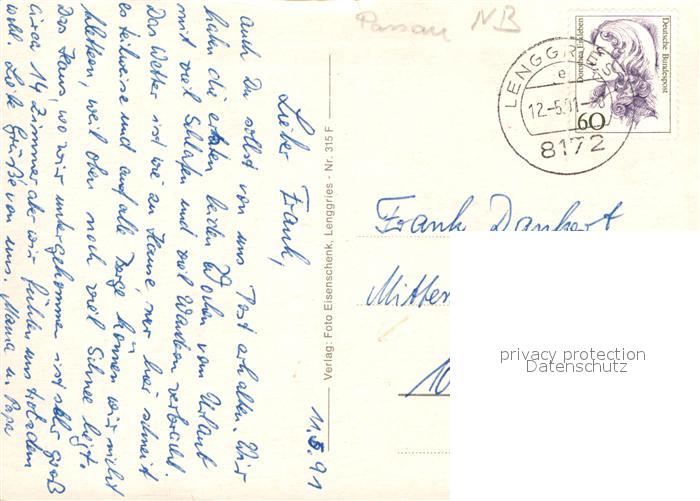 Passau NB
Deutsche Bundespost
Dorothea Erxleben
60
LENGGRIES
e
12.-5.91-
8172
11.5.91
Lieber Frank,
auch Du sollst von uns Post erhalten. Wir
haben die ersten beiden Wochen vom Urlaub
mit viel Schlafen und viel Wandern verbracht.
Das Wetter ist wie zu Hause nur hier schneit
es teilweise und auf alle Berge können wir nicht
klettern, weil oben noch viel Schnee liegt.
Das Haus, wo wir untergekommen sind sehr groß
circa 14 Zimmer aber wir fühlen uns trotzdem
wohl. Liebe Grüße von uns. Mama u. Papa
Verlag: Foto Eisenschenk, Lenggries - Nr. 315 F
Frank Dankert
Mitten
10
privacy protection
Datenschutz